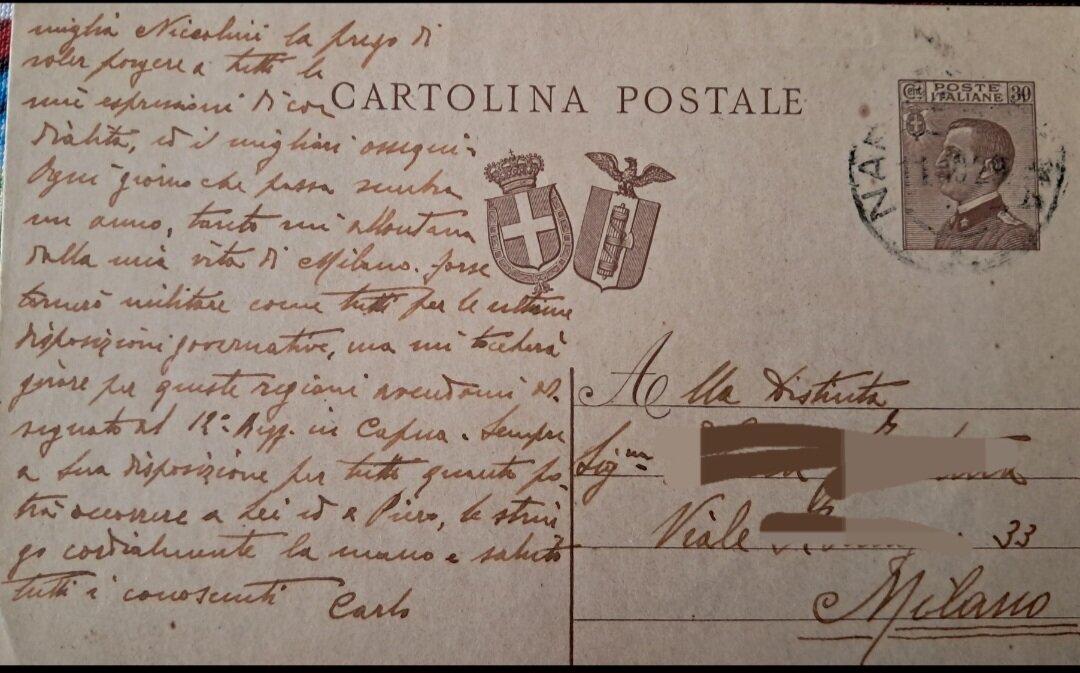 miglia Niccolini la prego di
voler porgere a tutti le
mie espressioni di cor
dialità, ed i migliori ossequi.
Ogni giorno che passa sembra
un anno, tanto mi allontana
dalla mia vita di Milano. Forse
tornerò militare come tutti per le ultime
disposizioni governative, ma mi toccherà
girare per queste regioni avendomi as
segnato al 12° Regg. in Capua. Sempre
a Sua disposizione per tutto quanto po-
trà occorrere a Lei ed a Piero, le strin
go cordialmente la mano e saluto
tutti i conoscenti
Carlo
CARTOLINA POSTALE
Cent. POSTE ITALIANE 30
NA
Alla Distinta
Sig.na
Viale 33
Milano